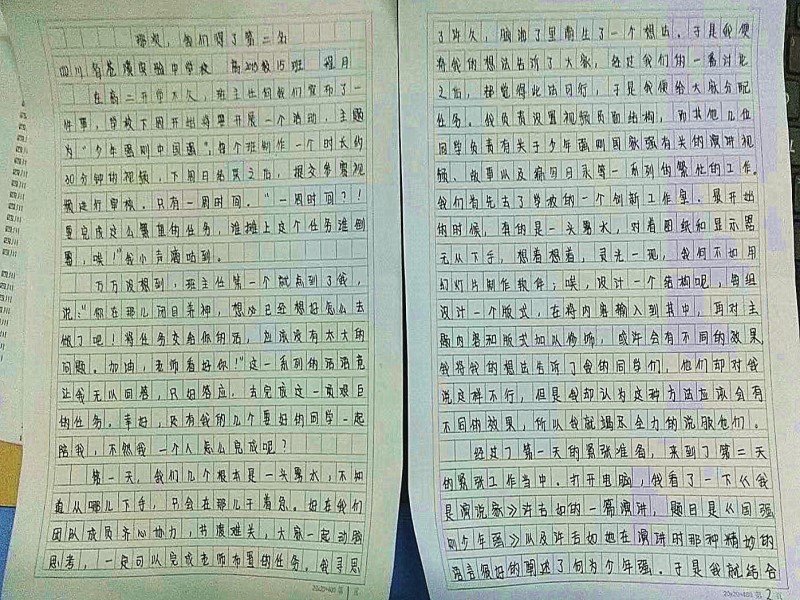 我们得了第二名
四川省苍溪实验中学校 高2015级15班 程月
在高二开学不久,班主任向我们宣布了一
件事,学校下周开始将要开展一个活动,主题
为“少年强则中国强”,每个班制作一个时长约
30分钟的视频,下周日结束之后,提交参赛视
频进行审核。只有一周时间。“一周时间?!
要完成这么繁重的任务,谁摊上这个任务谁倒
霉,唉!”我小声嘀咕到。
万万没想到,班主任第一个就点到了我,
说:“你在那儿闭目养神,想必已经想好怎么去
做了吧!将任务交给你的话,应该没有太大的
问题。加油,老师看好你!”这一系列的话语竟
让我无以回答,只好答应。去完成这一项艰巨
的任务。幸好,还有我的几个要好的同学一起
陪我,不然我一个人怎么完成呢?
第一天,我们几个根本是一头雾水,不知
道从哪儿下手,只会在那儿干着急。好在我们
团队成员齐心协力,共渡难关,大家一起动脑
思考,一定可以完成老师布置的任务。我寻思
20x20=400 第1页
了许久,脑海里萌生了一个想法。于是我便
将我的想法告诉了大家,经过我们的一番讨论
之后,都觉得此法可行,于是我便给大家分配
任务。我负责设置视频页面结构,而其他几位
同学负责有关于少年强则国家强有关的演讲视
频、故事以及病句目录等一系列的繁忙的工作。
我们首先去了学校的一个创新工作室。展开始
的时候,有的是一头雾水,对着图纸和显示器
无从下手,想着想着,灵光一现,我何不如用
幻灯片制作软件;唉,设计一个结构呢,每组
设计一个版式,在将内容输入到其中,再对主
题内容和版式加以修饰,或许会有不同的效果
我将我的想法告诉了我的同学们,他们却对我
说这样不行,但是我却认为这种方法应该会有
不同的效果,所以我就竭尽全力的说服他们。
经过了第一天的紧张准备,来到了第二天
的紧张工作当中。打开电脑,我看了一下《我
是演说家》许吉如的一篇演讲,题目是《国强
则少年强》以及许吉如她在演讲时那种精妙的
语言很好的阐述了何为少年强。于是我就结合
20x20=400 第2页